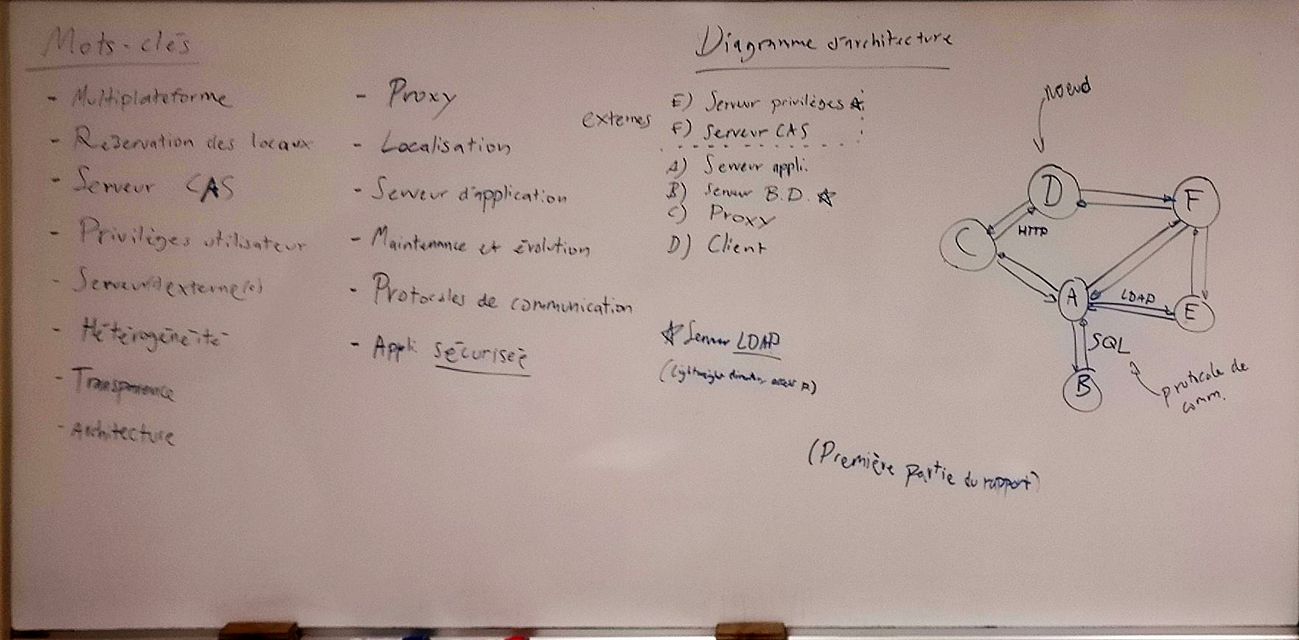 Mots-clés
- Multiplateforme
- Réservation des locaux
- Serveur CAS
- Privilèges utilisateur
- Serveur(s) externe(s)
- Hétérogénéité
- Transparence
- Architecture
- Proxy
- Localisation
- Serveur d'application
- Maintenance et évolution
- Protocoles de communication
- Appli sécurisée
Diagramme d'architecture
externes
E) Serveur privilèges ☆
F) Serveur CAS
A) Serveur appli.
B) Serveur B.D. ☆
C) Proxy
D) Client
☆ Serveur LDAP
(Lightweight
noeud
D
F
C
HTTP
A
LDAP
E
SQL
B
protocole de
comm.
(Première partie du rapport)